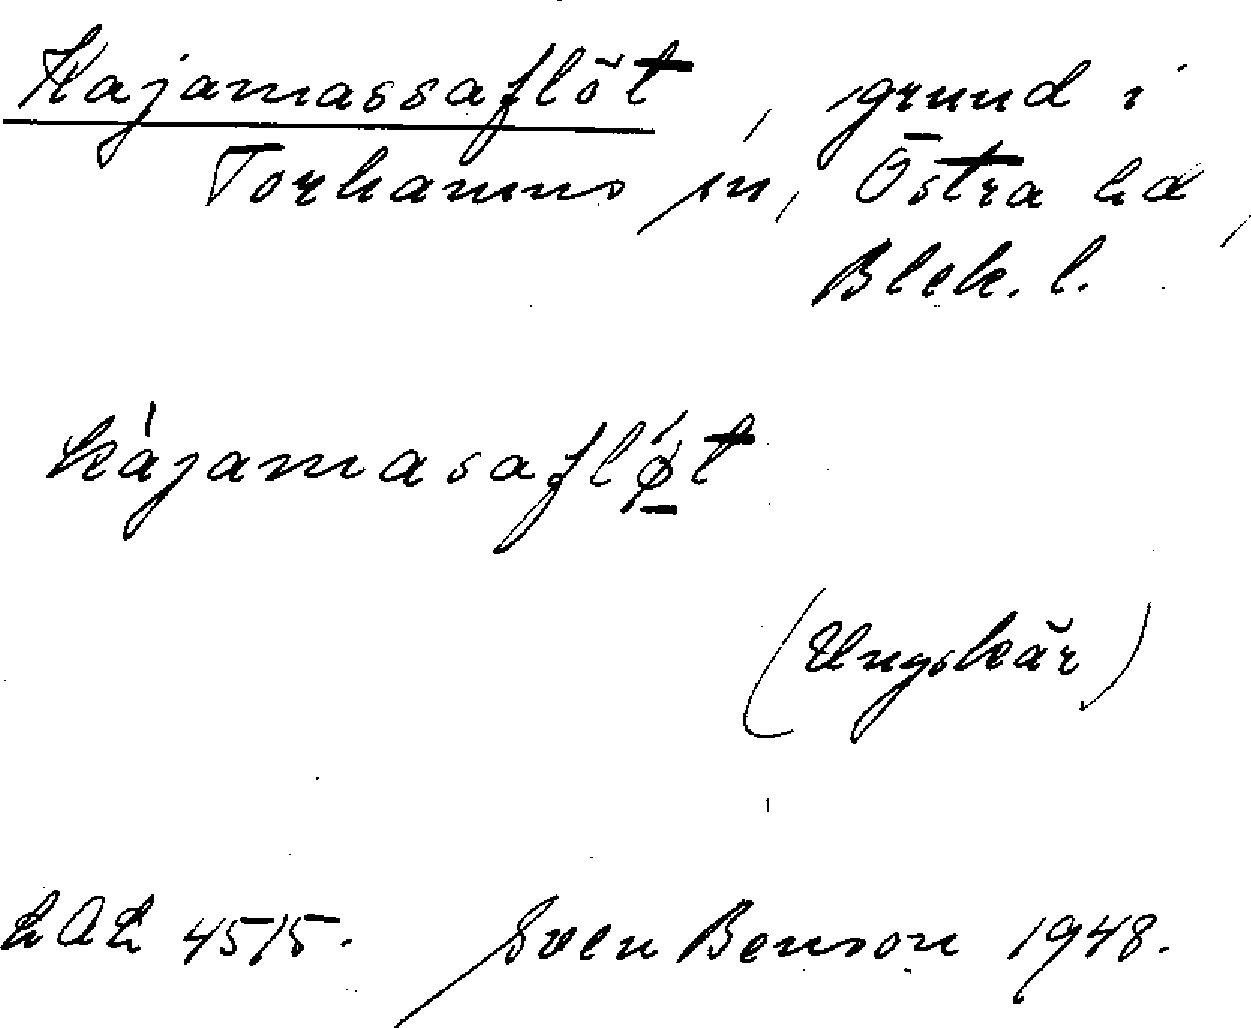 Kajamassaflöt, grund i
Torhamns sn, Östra hd,
Blek. l.
kájamasaflǿ̱t
(Ungskär)
4515. Sven Benson 1948.